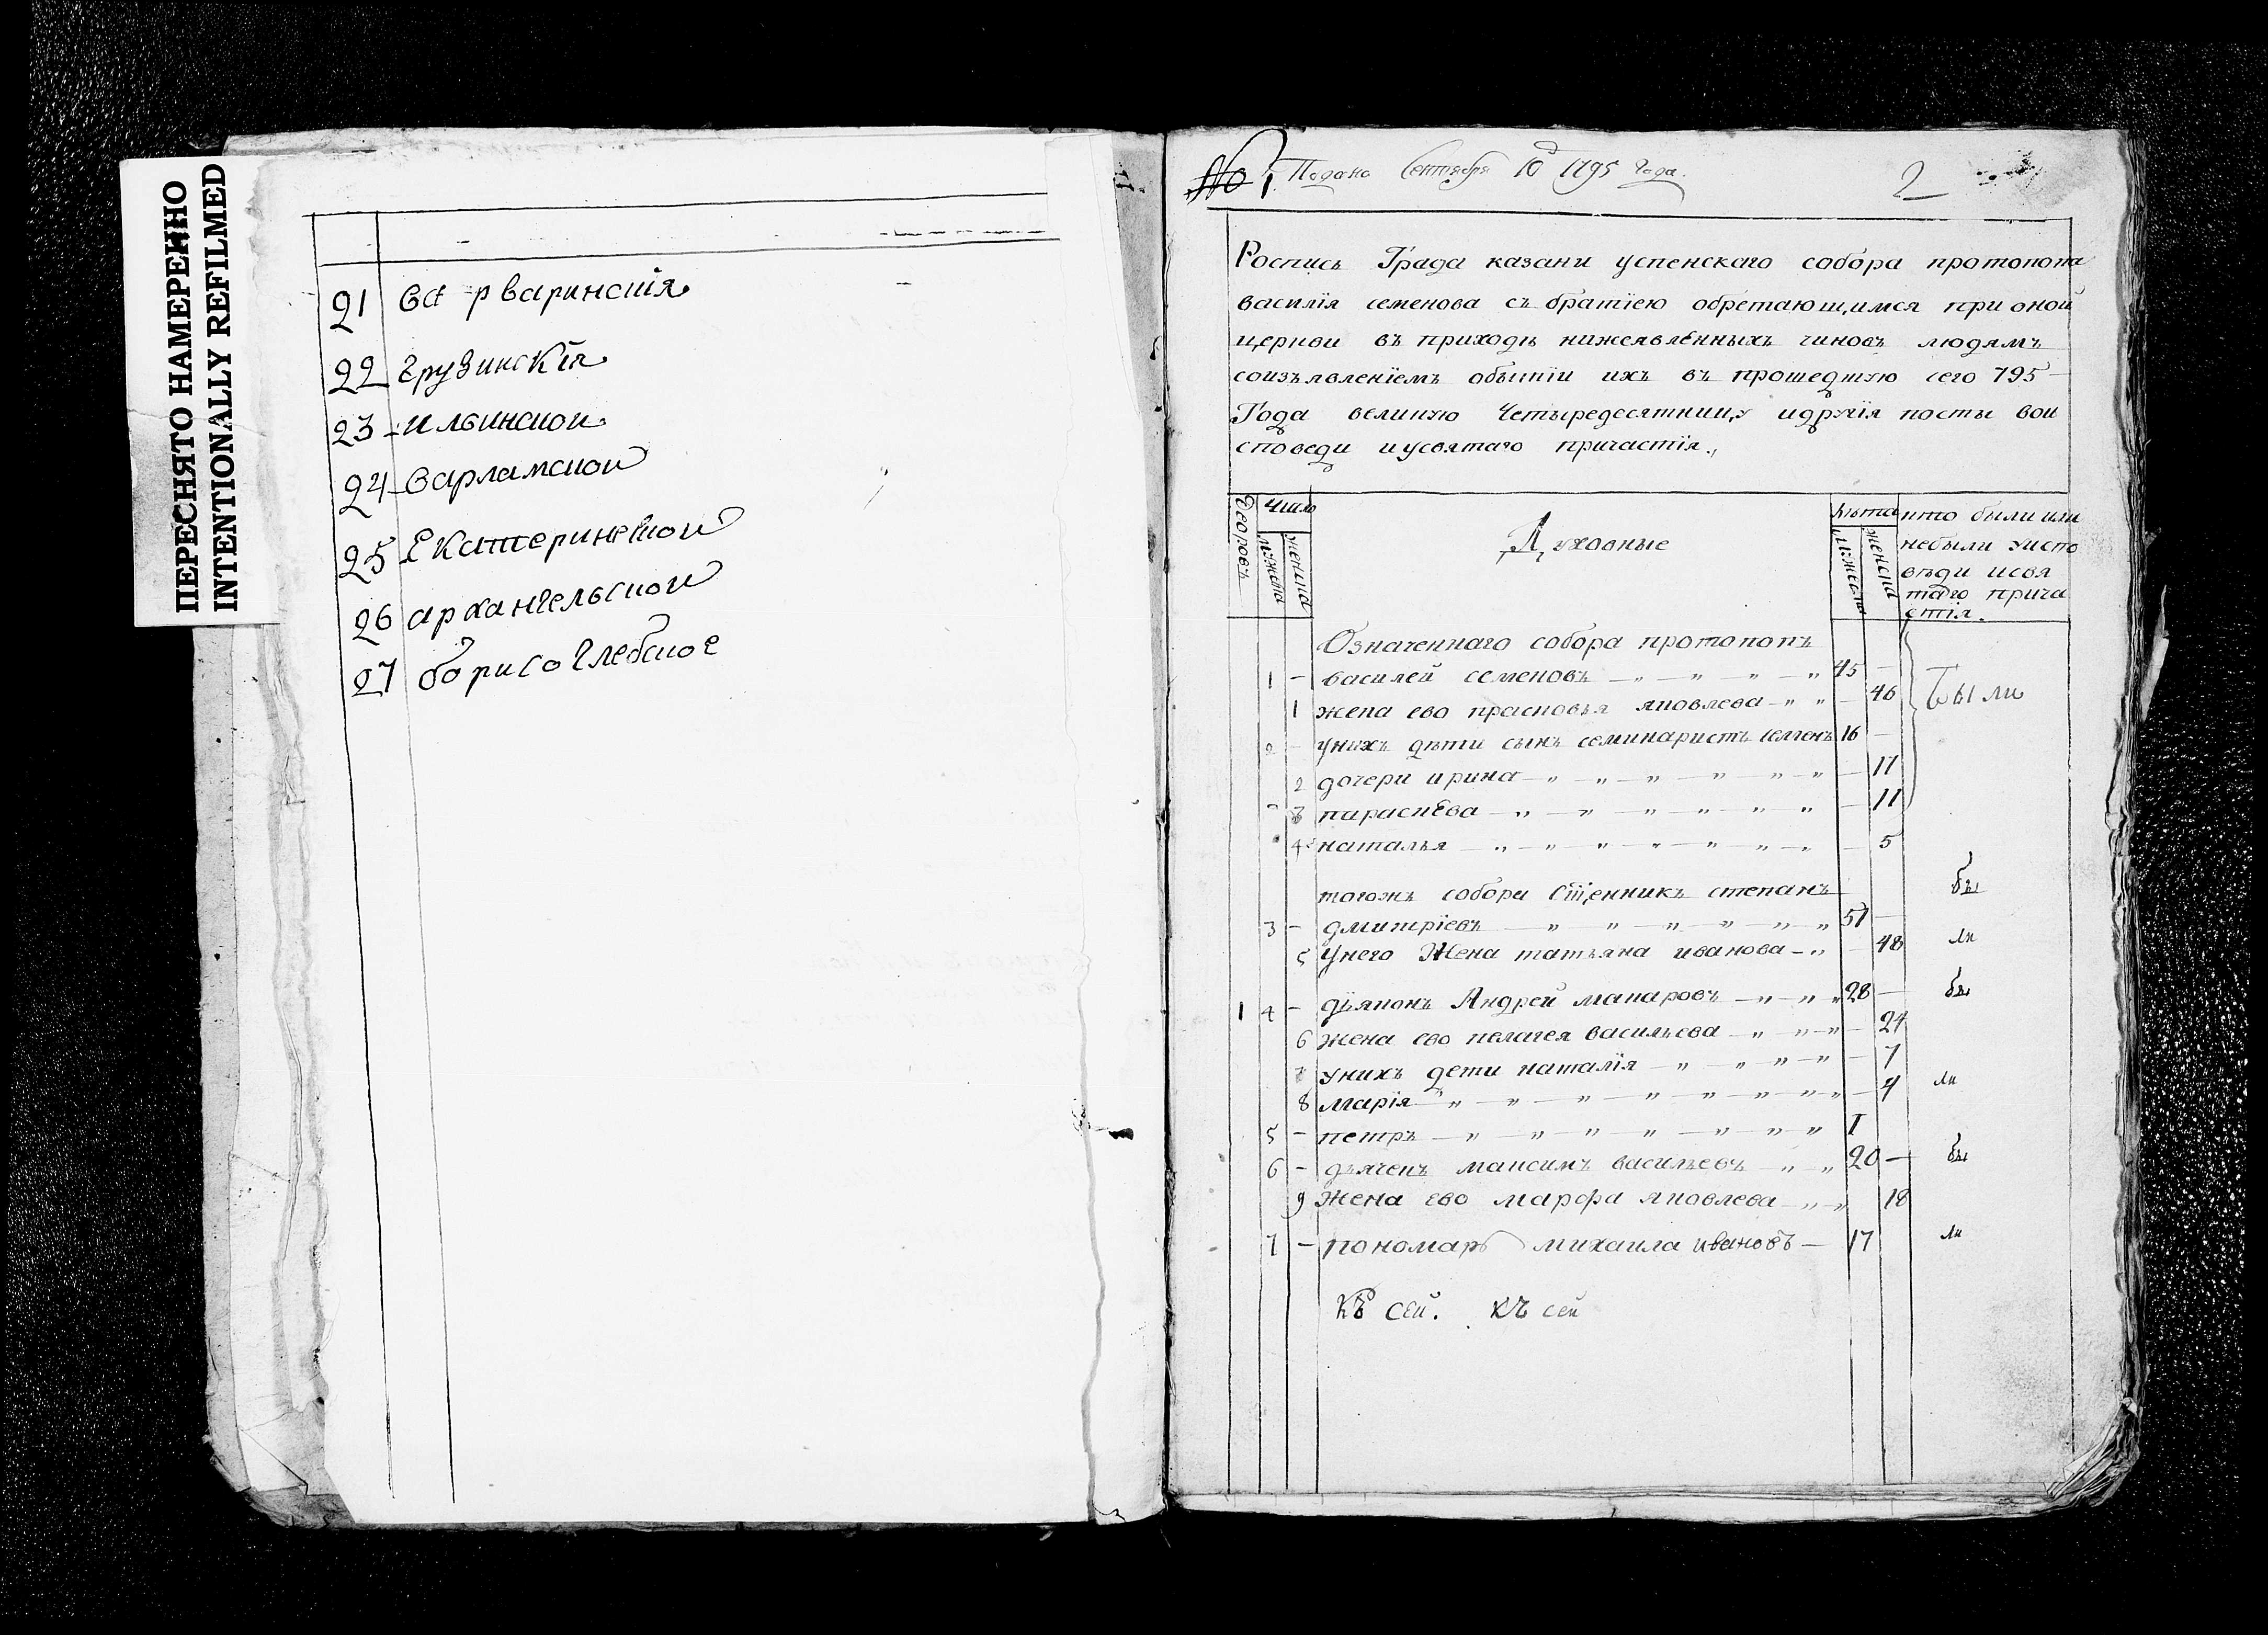 ПЕРЕСНЯТО НАМЕРЕННО
INTENTIONALLY REFILMED
21 варваринскiя
22 грузинскiя
23 ильинской
24 варламской
25 Екатерининской
26 архангельской
27 борисоглебское
№ 1 Подано Сентября 10д 1795 Года.
2
Роспись Града казани успенскаго собора протопопа
василїя семенова съ братїею обретающимся при оной
церкви въ приходѣ нижеявленныхъ чиновъ людямъ
соизъявленїемъ обытiи ихъ въ прошедшую сего 795
Года великую Четыредесятницу идругїя посты вои
споведи иусвятаго причастїя.
Дворовъ
Число
мужеска
женска
Духовные
Лѣта
мужеска
женска
кто были или
небыли уиспо
вѣди исвя
таго прича
стїя.
Означеннаго собора протопопъ
1 - василей семеновъ 45 -
1 жена ево прасковья яковлева - 46
Были
2 - унихъ дѣти сынъ семинаристъ семенъ 16 -
2 дочери ирина - 17
- 3 параскева - 11
4 наталья - 5
тогожъ собора сщ͞енникъ степанъ
3 - дмитрїевъ 57 -
бы
5 Унего Жена татьяна иванова - 48
ли
1 4 - дьяконъ Андрей макаровъ 28 -
бы
6 жена ево пелагея васильева - 24
7 унихъ дети наталїя - 7
8 марїя - 4
ли
5 - петръ 1
6 - дьячекъ максимъ васильевъ 20 -
бы
9 жена ево марфа яковлева 18
7 - пономарь михаила ивановъ - 17
ли
къ сей. къ сей